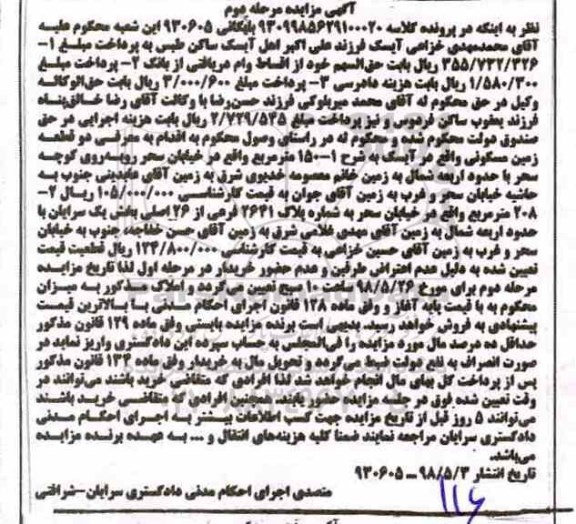 آگهی مزایده مرحله دوم
نظر به اینکه در پرونده کلاسه ۹۳۰۹۹۸۵۶۲۹۱۰۰۰۲۰ بایگانی ۹۳۰۶۰۵ این شعبه محکوم علیه
آقای محمدمهدی خزاعی آیسک فرزند علی اکبر اهل آیسک ساکن طبس به پرداخت مبلغ ۱-
۳۵۵/۷۳۲/۳۲۶ ریال بابت حق‌السهم خود از اقساط وام دریافتی از بانک ۲- پرداخت مبلغ
۱/۵۸۰/۳۰۰ ریال بابت هزینه دادرسی ۳- پرداخت مبلغ ۳/۰۰۰/۶۰۰ ریال بابت حق‌الوکاله
وکیل در حق محکوم له آقای محمد میربلوکی فرزند حسن‌رضا با وکالت آقای رضا خالق‌پناه
فرزند یعقوب ساکن فردوس و نیز پرداخت مبلغ ۲/۷۲۹/۵۳۵ ریال بابت هزینه اجرایی در حق
صندوق دولت محکوم شده و محکوم له در راستای وصول محکوم به اقدام به معرفی دو قطعه
زمین مسکونی واقع در آیسک به شرح ۱-۱۵۰ مترمربع واقع در خیابان سحر روبه‌روی کوچه
سحر با حدود اربعه شمال به زمین خانم معصومه خدیوی شرق به زمین آقای عابدینی جنوب به
حاشیه خیابان سحر و غرب به زمین آقای جوان به قیمت کارشناسی ۱۰۵/۰۰۰/۰۰۰ ریال ۲-
۲۰۸ مترمربع واقع در خیابان سحر به شماره پلاک ۲۶۴۱ فرعی از ۲۶ اصلی بخش یک سرایان با
حدود اربعه شمال به زمین آقای مهدی غلامی شرق به زمین آقای حسن خفاجه، جنوب به خیابان
سحر و غرب به زمین آقای حسین خزاعی به قیمت کارشناسی ۱۲۴/۸۰۰/۰۰۰ ریال قطعیت قیمت
تعیین شده به دلیل عدم اعتراض طرفین و عدم حضور خریدار در مرحله اول لذا تاریخ مزایده
مرحله دوم برای مورخ ۹۸/۵/۲۶ ساعت ۱۰ صبح تعیین می‌گردد و املاک مذکور به میزان
محکوم به با قیمت پایه آغاز و وفق ماده ۱۲۸ قانون اجرای احکام مدنی با بالاترین قیمت
پیشنهادی به فروش خواهد رسید. بدیهی است برنده مزایده بایستی وفق ماده ۱۲۹ قانون مذکور
حداقل ده درصد مال مورد مزایده را فی‌المجلس به حساب سپرده این دادگستری واریز نماید در
صورت انصراف به نفع دولت ضبط می‌گردد و تحویل مال به خریدار وفق ماده ۱۳۴ قانون مذکور
پس از پرداخت کل بهای مال انجام خواهد شد لذا افرادی که متقاضی خرید باشند می‌توانند در
وقت تعیین شده فوق در جلسه مزایده حضور یابند. همچنین افرادی که متقاضی خرید باشند
می‌توانند ۵ روز قبل از تاریخ مزایده جهت کسب اطلاعات بیشتر به اجرای احکام مدنی
دادگستری سرایان مراجعه نمایند ضمنا کلیه هزینه‌های انتقال و ... به عهده برنده مزایده
می‌باشد.
تاریخ انتشار ۹۸/۵/۳ ــ ۹۳۰۶۰۵
متصدی اجرای احکام مدنی دادگستری سرایان-شرافتی
۱۱۶